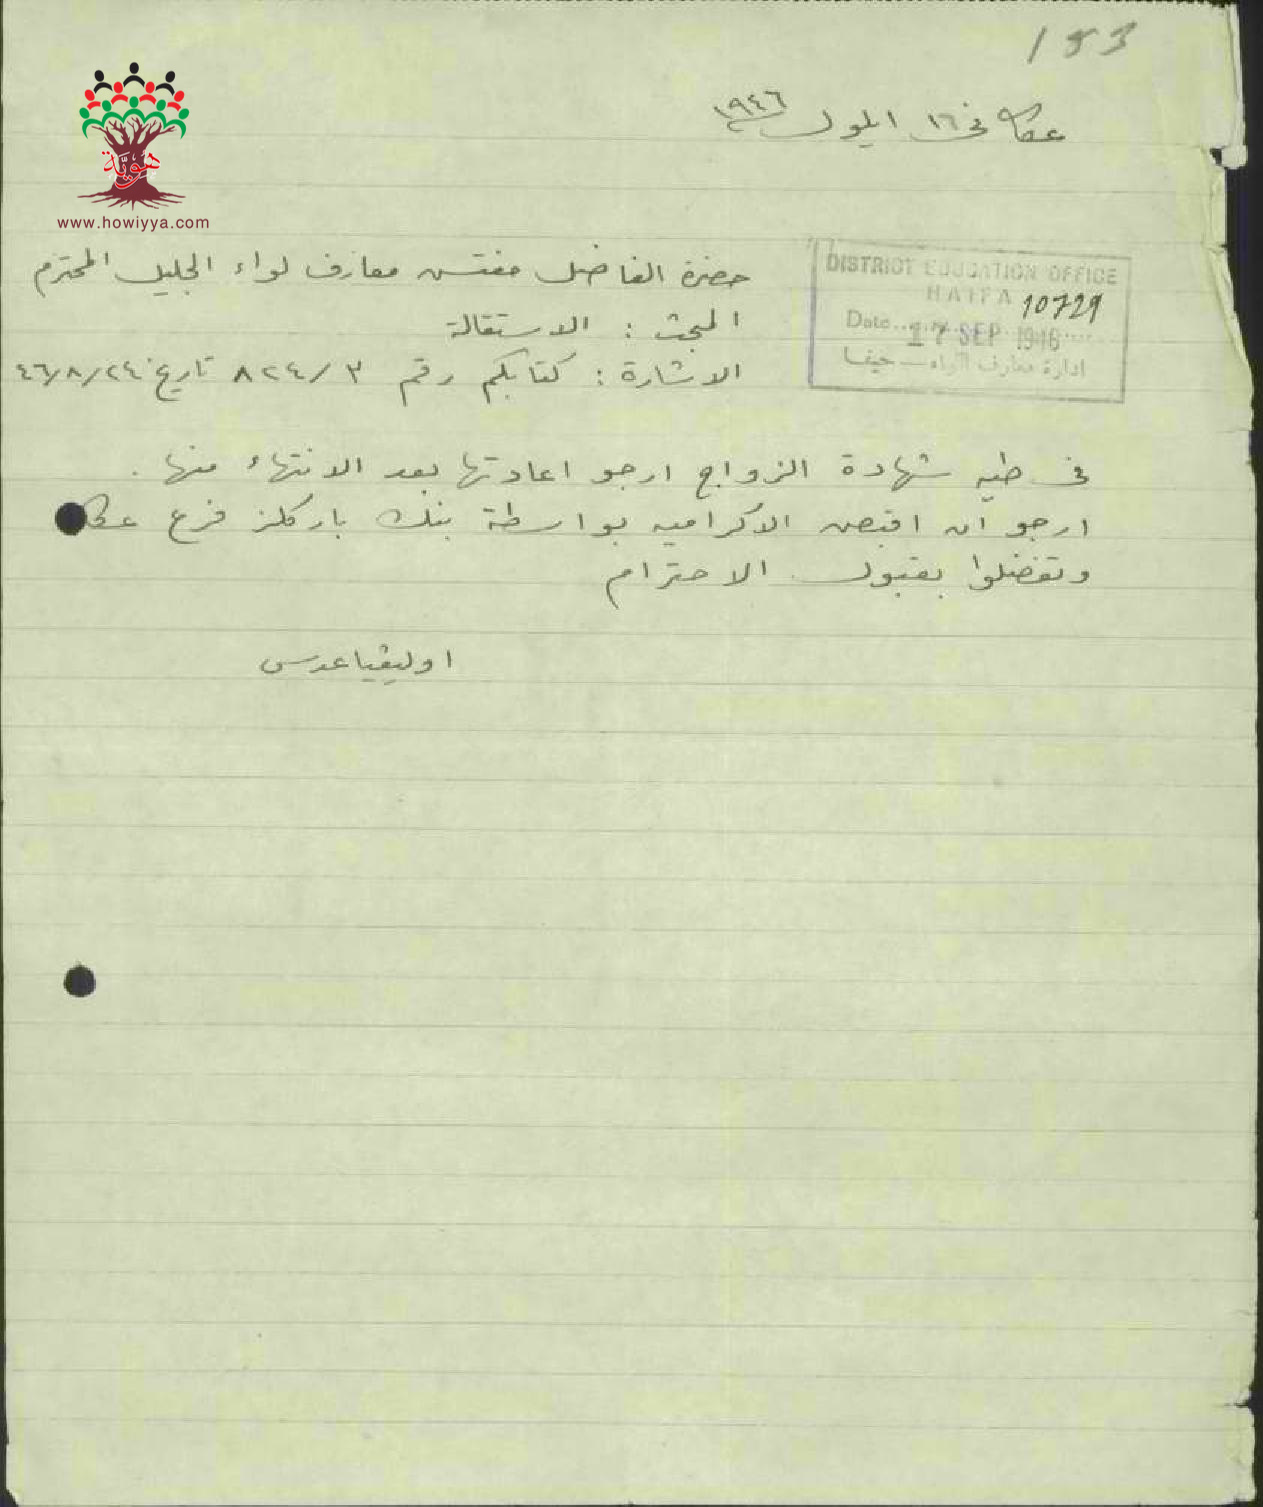 153
عكا في ١٦ ايلول ١٩٤٦
هوية
www.howiyya.com
حضرة الفاضل مفتش معارف لواء الجليل المحترم
المبحث : الاستقالة
الاشارة : كتابكم رقم ٣/ ٨٢٤ تاريخ ٤٦/٨/٢٤
DISTRICT EDUCATION OFFICE
HAIFA
10729
Date 17 SEP 1946
ادارة معارف اللواء - حيفا
في طيه شهادة الزواج ارجو اعادتها بعد الانتهاء منها .
ارجو ان اقبض الاكرامية بواسطة بنك باركلز فرع عكا
وتفضلوا بقبول الاحترام
عدس